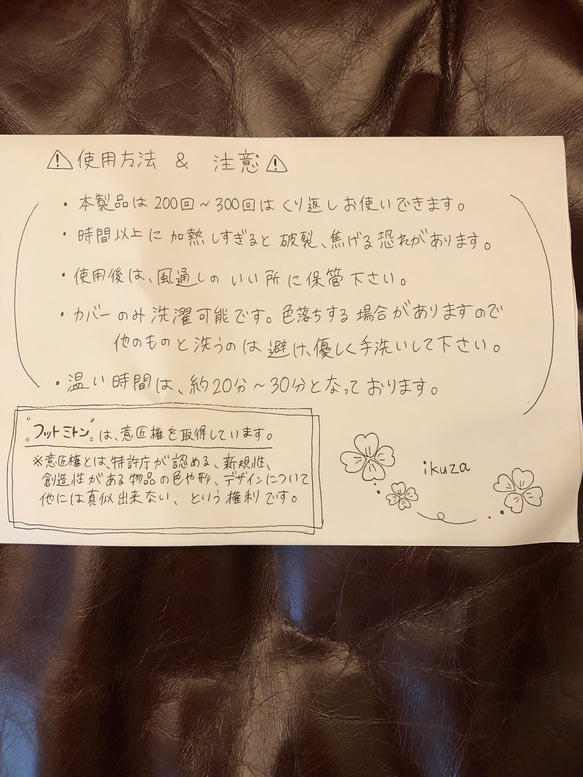 ⚠使用方法 & 注意⚠
・本製品は200回～300回はくり返しお使いできます。
・時間以上に加熱しすぎると破裂、焦げる恐れがあります。
・使用後は、風通しのいい所に保管下さい。
・カバーのみ洗濯可能です。色落ちする場合がありますので
他のものと洗うのは避け、優しく手洗いして下さい。
・温い時間は、約20分～30分となっております。
"フットミトン"は、意匠権を取得しています。
※意匠権とは、特許庁が認める、新規性、
創造性がある物品の色や形、デザインについて
他には真似出来ない、という権利です。
ikuza